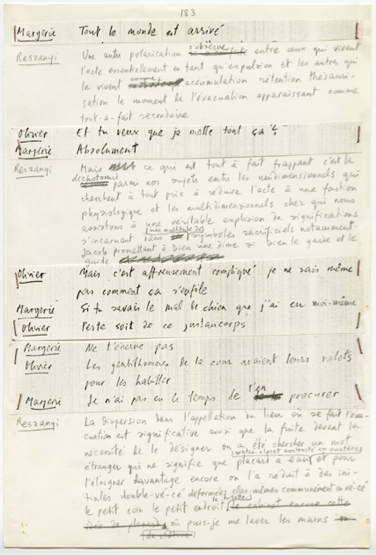 183
Margerie Tout le monde est arrivé
Reszanyi Une autre polarisation s'observe entre ceux qui vivent
l'acte essentiellement en tant qu'expulsion et les autres qui
le vivent accumulation rétention thésauri-
sation le moment de l'évacuation apparaissant comme
tout-à-fait secondaire
Olivier Et tu veux que je mette tout ça ?
Margerie Absolument
Reszanyi Mais ce qui est tout à fait frappant c'est la
dichotomie parmi nos sujets entre les unidimensionnels qui
cherchent à tout prix à réduire l'acte à une fonction
physiologique et les multidimensionnels chez qui nous
assistons à une véritable explosion de significations
s'incarnant dans symboles sacrificiels notamment
Jacob promettant à Dieu une dîme si bien le garde et le
guide
Olivier Mais c'est affreusement compliqué je ne sais même
pas comment ça s'enfile
Margerie Si tu savais le mal de chien que j'ai eu moi-même
Olivier Peste soit de ce justaucorps
Margerie Ne t'énerve pas
Olivier Les gentilshommes de la cour avaient leurs valets
pour les habiller
Margerie Je n'ai pas eu le temps de t'en procurer
Reszanyi La dispersion dans l'appellation du lieu où se fait l'éva-
cuation est significative aussi que la fuite devant la
nécessité de le désigner on a été chercher un mot
étranger qui ne signifie que placard à eau et pour
l'éloigner davantage encore on l'a réduit à des ini-
tiales double-vé-cé déformées elles-mêmes communément en vé-cé
le petit coin le petit endroit
où puis-je me laver les mains